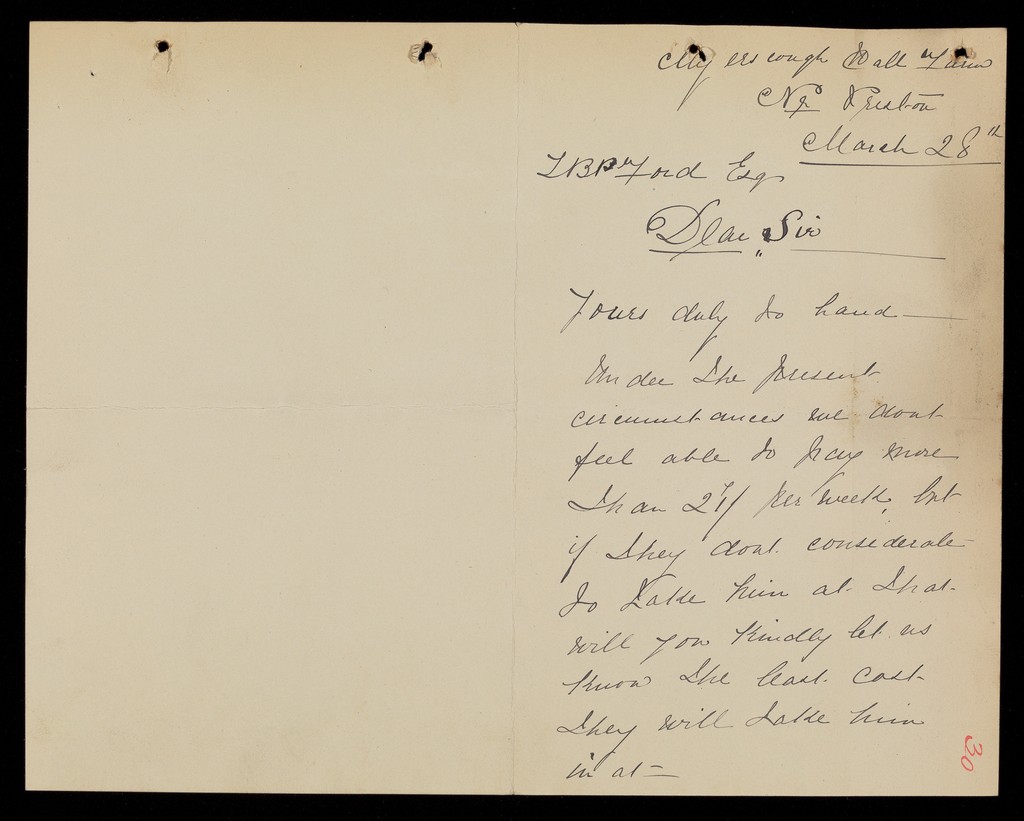 Myerscough Hall Farm
Nr Preston
March 28th
Ford Esq
Dear Sir
Yours duly to hand
Under the present
circumstances we dont
feel able to pay more
than 21/ per week, but
if they dont considerate
to take him at that
will you kindly let us
know the least cost
they will take him
in at
30